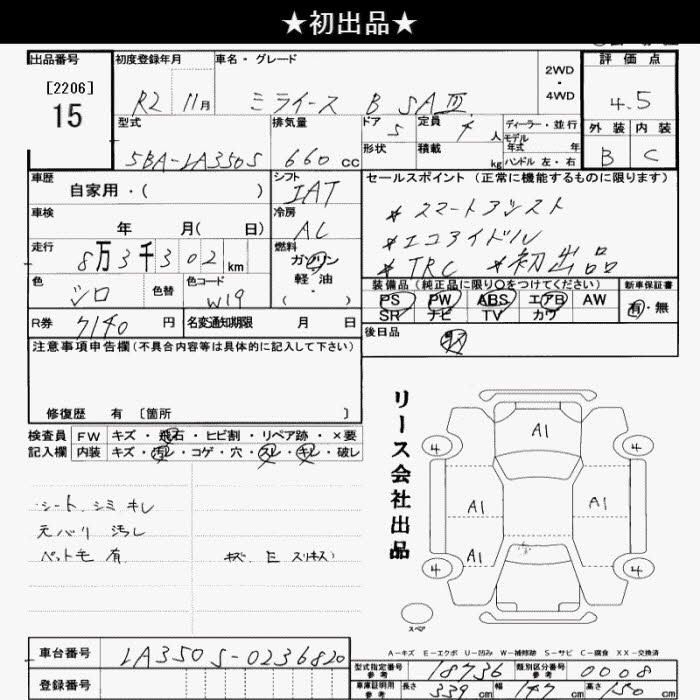 ★初出品★
出品番号 初度登録年月 車名・グレード 2WD・4WD 評価点
[2206]
15
R2 11月 ミライース B SAⅢ 4.5
型式 排気量 ドア 定員 ディーラー・並行 外装 内装
5BA-LA350S 660cc 5 4人 モデル年式 年 B C
形状 積載 kg ハンドル 左・右
車歴 シフト セールスポイント(正常に機能するものに限ります)
自家用・( ) IAT *スマートアシスト
車検 冷房 *エコアイドル
年 月( 日) AC *TRC *初出品
走行 燃料
8万3千302km ガソリン
軽油
・( )
色 色替 色コード 装備品(純正品に限り○をつけてください) 新車保証書
シロ W19 PS PW ABS エアB AW 有・無
R券 7140円 名変通知期限 月 日 SR ナビ TV カワ
注意事項申告欄(不具合内容等は具体的に記入して下さい) 後日品
修復歴 有 [箇所 ]
検査員 FW キズ・飛石・ヒビ割・リペア跡・×要
記入欄 内装 キズ・汚レ・コゲ・穴・スレ・キレ・破レ
シート シミ キレ
天バリ 汚レ
ペット毛 有
リース会社出品
A1
4 4
A1 A1
A1
4 4
スペア
A-キズ E-エクボ U-凹み W-補修跡 S-サビ C-腐食 XX-交換済
車台番号 LA350S-0236820
登録番号
型式指定番号 参考 18736 類別区分番号 参考 0008
車庫証明用 参考 長さ 339cm 幅 147cm 高さ 150cm